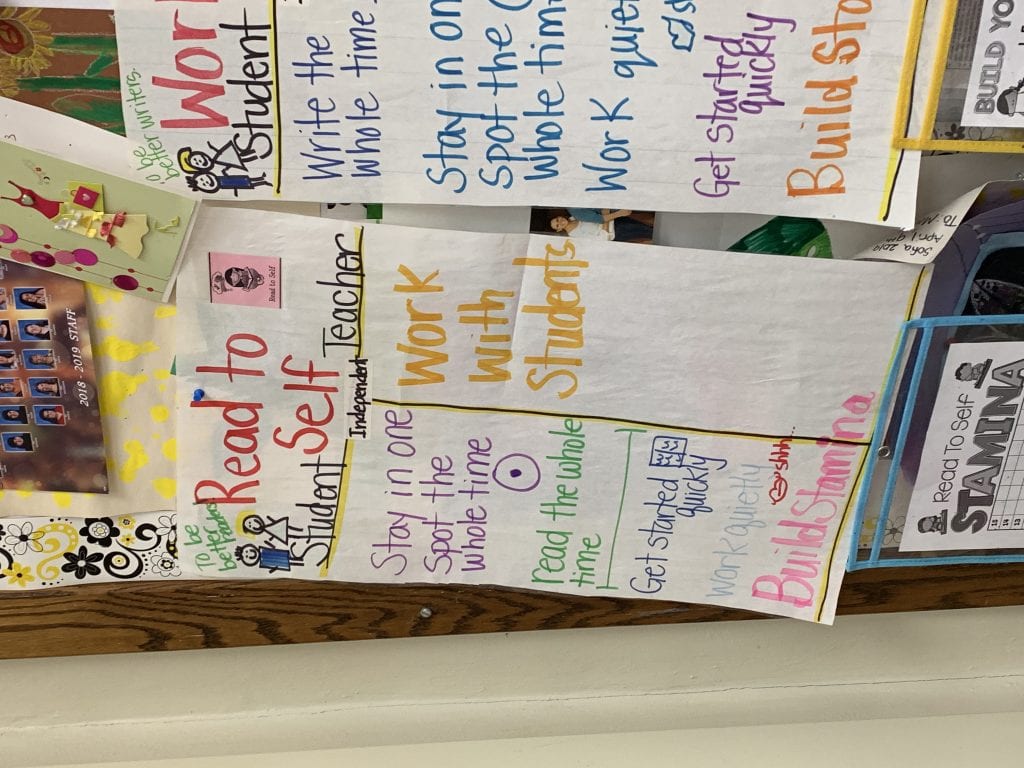 To be
better writers.
Wor
Student
Write the
whole time.
Stay in on
spot the
whole tim
Work quie
Get started
quickly
Build Sta
BUILD YO
Sofia 2019
To be
better
Read to
Self
Read to Self
Independent
Student
Teacher
Stay in one
spot the
whole time
read the whole
time
Get started
quickly
Work quietly
shhh...
Build Stamina
Work
with
Students
2018 - 2019 STAFF
Read To Self
STAMINA